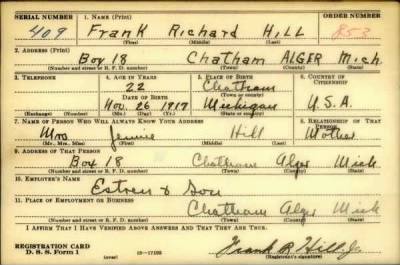 SERIAL NUMBER 1. NAME (Print) ORDER NUMBER
409 Frank Richard HILL 853
(First) (Middle) (Last)
2. ADDRESS (Print)
Box 18 Chatham ALGER Mich
(Number and street or R. F. D. number) (Town) (County) (State)
3. TELEPHONE 4. AGE IN YEARS 5. PLACE OF BIRTH 6. COUNTRY OF CITIZENSHIP
22 Chatham
DATE OF BIRTH (Town or county)
Nov. 26 1917 Michigan U.S.A.
(Exchange) (Number) (Mo.) (Day) (Yr.) (State or country)
7. NAME OF PERSON WHO WILL ALWAYS KNOW YOUR ADDRESS 8. RELATIONSHIP OF THAT PERSON
Mrs Jennie Hill Mother
(Mr. Mrs. Miss) (First) (Middle) (Last)
9. ADDRESS OF THAT PERSON
Box 18 Chatham Alger Mich
(Number and street or R. F. D. number) (Town) (County) (State)
10. EMPLOYER'S NAME
& Son
11. PLACE OF EMPLOYMENT OR BUSINESS
Chatham Alger Mich
(Number and street or R. F. D. number) (Town) (County) (State)
I AFFIRM THAT I HAVE VERIFIED ABOVE ANSWERS AND THAT THEY ARE TRUE.
REGISTRATION CARD
D. S. S. Form 1 Frank R Hill Jr
(Registrant's signature)